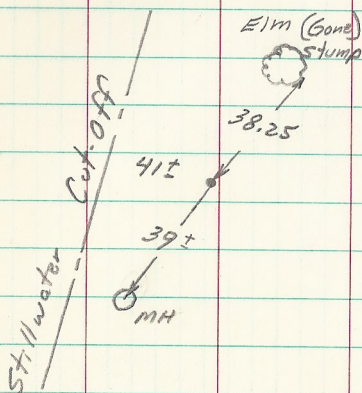 Elm (Gone)
Stump
38.25
41±
39±
MH
Stillwater Cut-Off